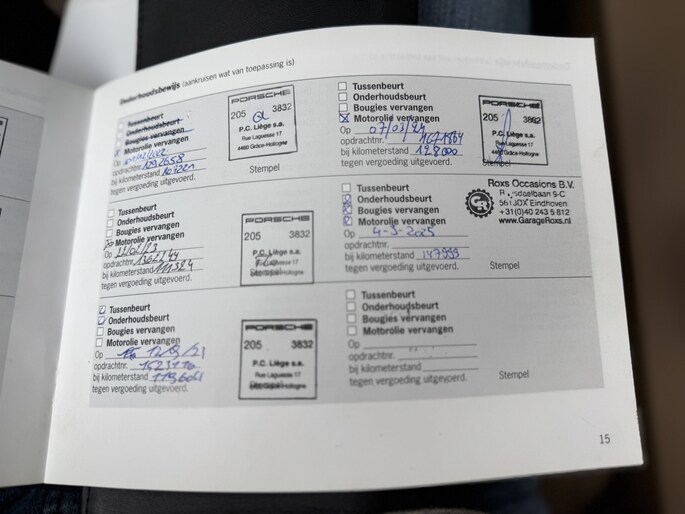 Onderhoudsbewijs (aankruisen wat van toepassing is)
Tussenbeurt
Onderhoudsbeurt
Bougies vervangen
Motorolie vervangen
Op
opdrachtnr. 1292658
bij kilometerstand
tegen vergoeding uitgevoerd.
PORSCHE
205 3832
P.C. Liège s.a.
Rue Laguesse 17
4460 Grâce-Hollogne
Stempel
Tussenbeurt
Onderhoudsbeurt
Bougies vervangen
Motorolie vervangen
Op
opdrachtnr. 1362144
bij kilometerstand 111324
tegen vergoeding uitgevoerd.
PORSCHE
205 3832
P.C. Liège s.a.
Rue Laguesse 17
Tussenbeurt
Onderhoudsbeurt
Bougies vervangen
Motorolie vervangen
Op 12/9/23
opdrachtnr. 1423110
bij kilometerstand
tegen vergoeding uitgevoerd.
PORSCHE
205 3832
P.C. Liège s.a.
Rue Laguesse 17
Tussenbeurt
Onderhoudsbeurt
Bougies vervangen
Motorolie vervangen
Op 07/03/24
opdrachtnr.
bij kilometerstand
tegen vergoeding uitgevoerd.
PORSCHE
205 3832
P.C. Liège s.a.
Rue Laguesse 17
4460 Grâce-Hollogne
Stempel
Tussenbeurt
Onderhoudsbeurt
Bougies vervangen
Motorolie vervangen
Op 4-3-2025
opdrachtnr.
bij kilometerstand 147999
tegen vergoeding uitgevoerd.
GR
Roxs Occasions B.V.
9-C
Eindhoven
+31(0)40 243 5 612
www.GarageRoxs.nl
Stempel
Tussenbeurt
Onderhoudsbeurt
Bougies vervangen
Motorolie vervangen
Op
opdrachtnr.
bij kilometerstand
tegen vergoeding uitgevoerd.
Stempel
15